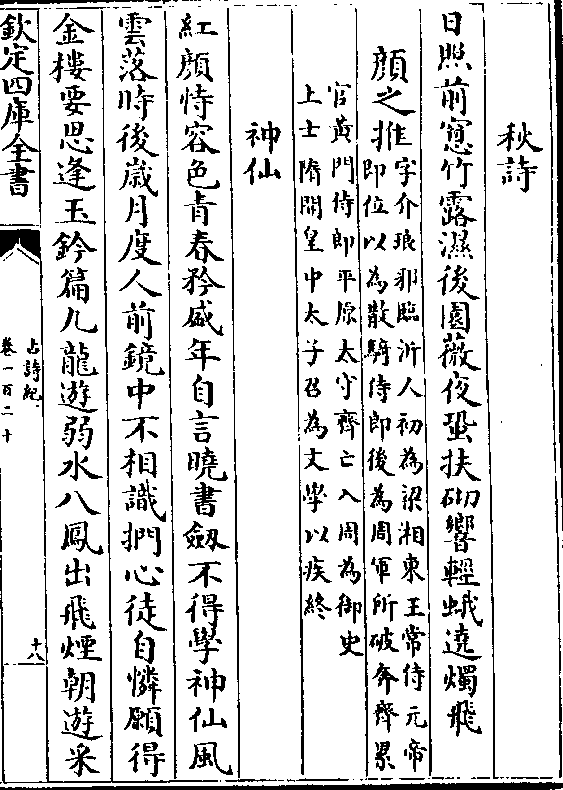 秋詩
日照前窻竹露濕後園薇夜蛩扶砌響輕蛾遶燭飛
顔之推
字介琅邪臨沂人初為梁湘東王常侍元帝
即位以為散騎侍郎後為周軍所破奔齊累
官黄門侍郎平原太守齊亡入周為御史
上士隋開皇中太子召為文學以疾終
神仙
紅顔恃容色青春矜盛年自言曉書劔不得學神仙風
雲落時後歲月度人前鏡中不相識捫心徒自憐願得
金樓要思逢玉鈐篇九龍遊弱水八鳳出飛煙朝遊采
欽定四庫全書
古詩紀
卷一百二十
十八